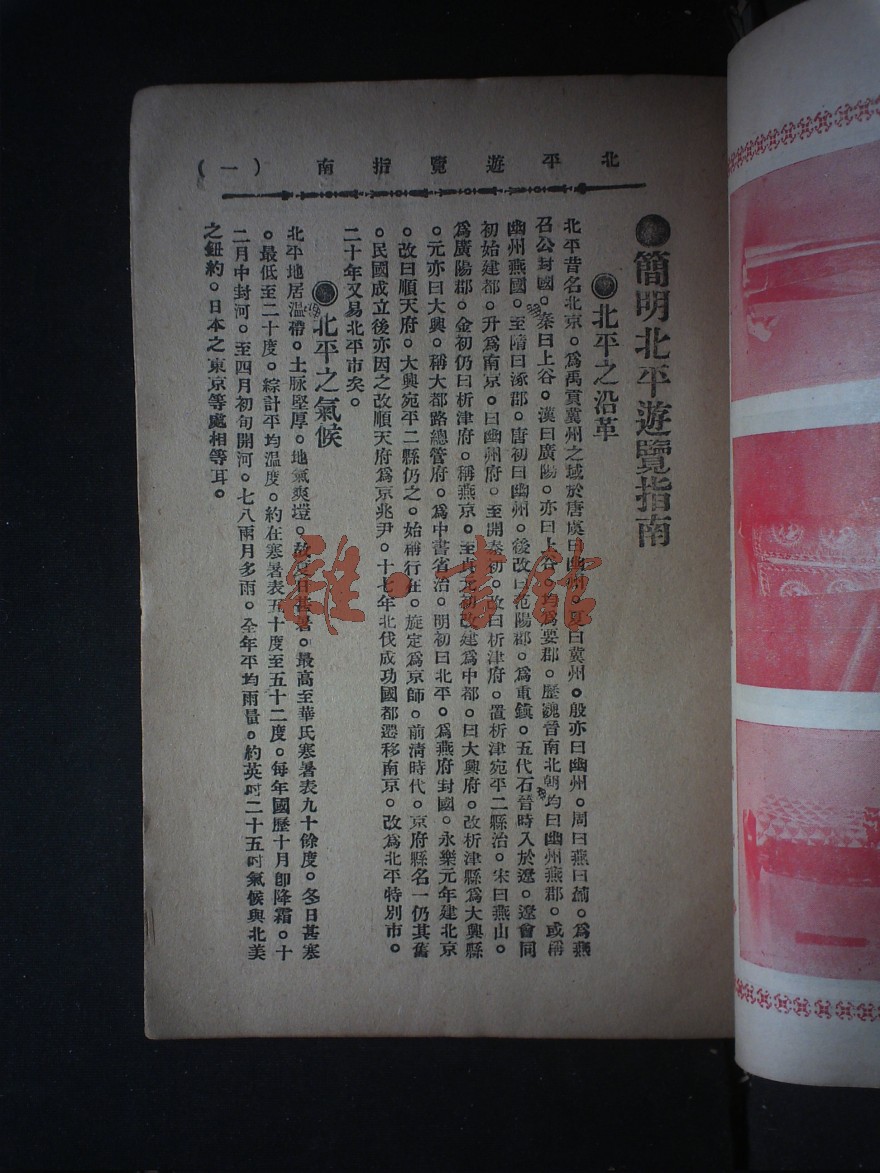 北平遊覽指南 （一）
簡明北平遊覽指南
北平之沿革
北平昔名北京。爲禹貢冀州之域於唐虞曰幽州。夏曰冀州。殷亦曰幽州。周曰燕曰薊。爲燕
召公封國。秦曰上谷。漢曰廣陽。亦曰上谷。均爲要郡。歷魏晉南北朝均曰幽州燕郡。或稱
幽州燕國。至隋曰涿郡。唐初曰幽州。後改曰范陽郡。爲重鎮。五代石晉時入於遼。遼會同
初始建都。升爲南京。曰幽州府。至開泰初。改曰析津府。置析津宛平二縣治。宋曰燕山。
爲廣陽郡。金初仍曰析津府。稱燕京。至貞元初改建爲中都。曰大興府。改析津縣爲大興縣
。元亦曰大興。稱大都路總管府。爲中書省治。明初曰北平。爲燕府封國。永樂元年建北京
。改曰順天府。大興宛平二縣仍之。始稱行在。旋定爲京師。前清時代。京府縣名一仍其舊
。民國成立後亦因之改順天府爲京兆尹。十七年北伐成功國都遷移南京。改爲北平特別市。
二十年又易北平市矣。
北平之氣候
北平地居溫帶。土脉堅厚。地氣爽塏。故夏日甚暑。最高至華氏寒暑表九十餘度。冬日甚寒
。最低至二十度。綜計平均溫度。約在寒暑表五十度至五十二度。每年國歷十月卽降霜。十
二月中封河。至四月初旬開河。七八兩月多雨。全年平均雨量。約英吋二十五吋氣候與北美
之鈕約。日本之東京等處相等耳。
雜·書館